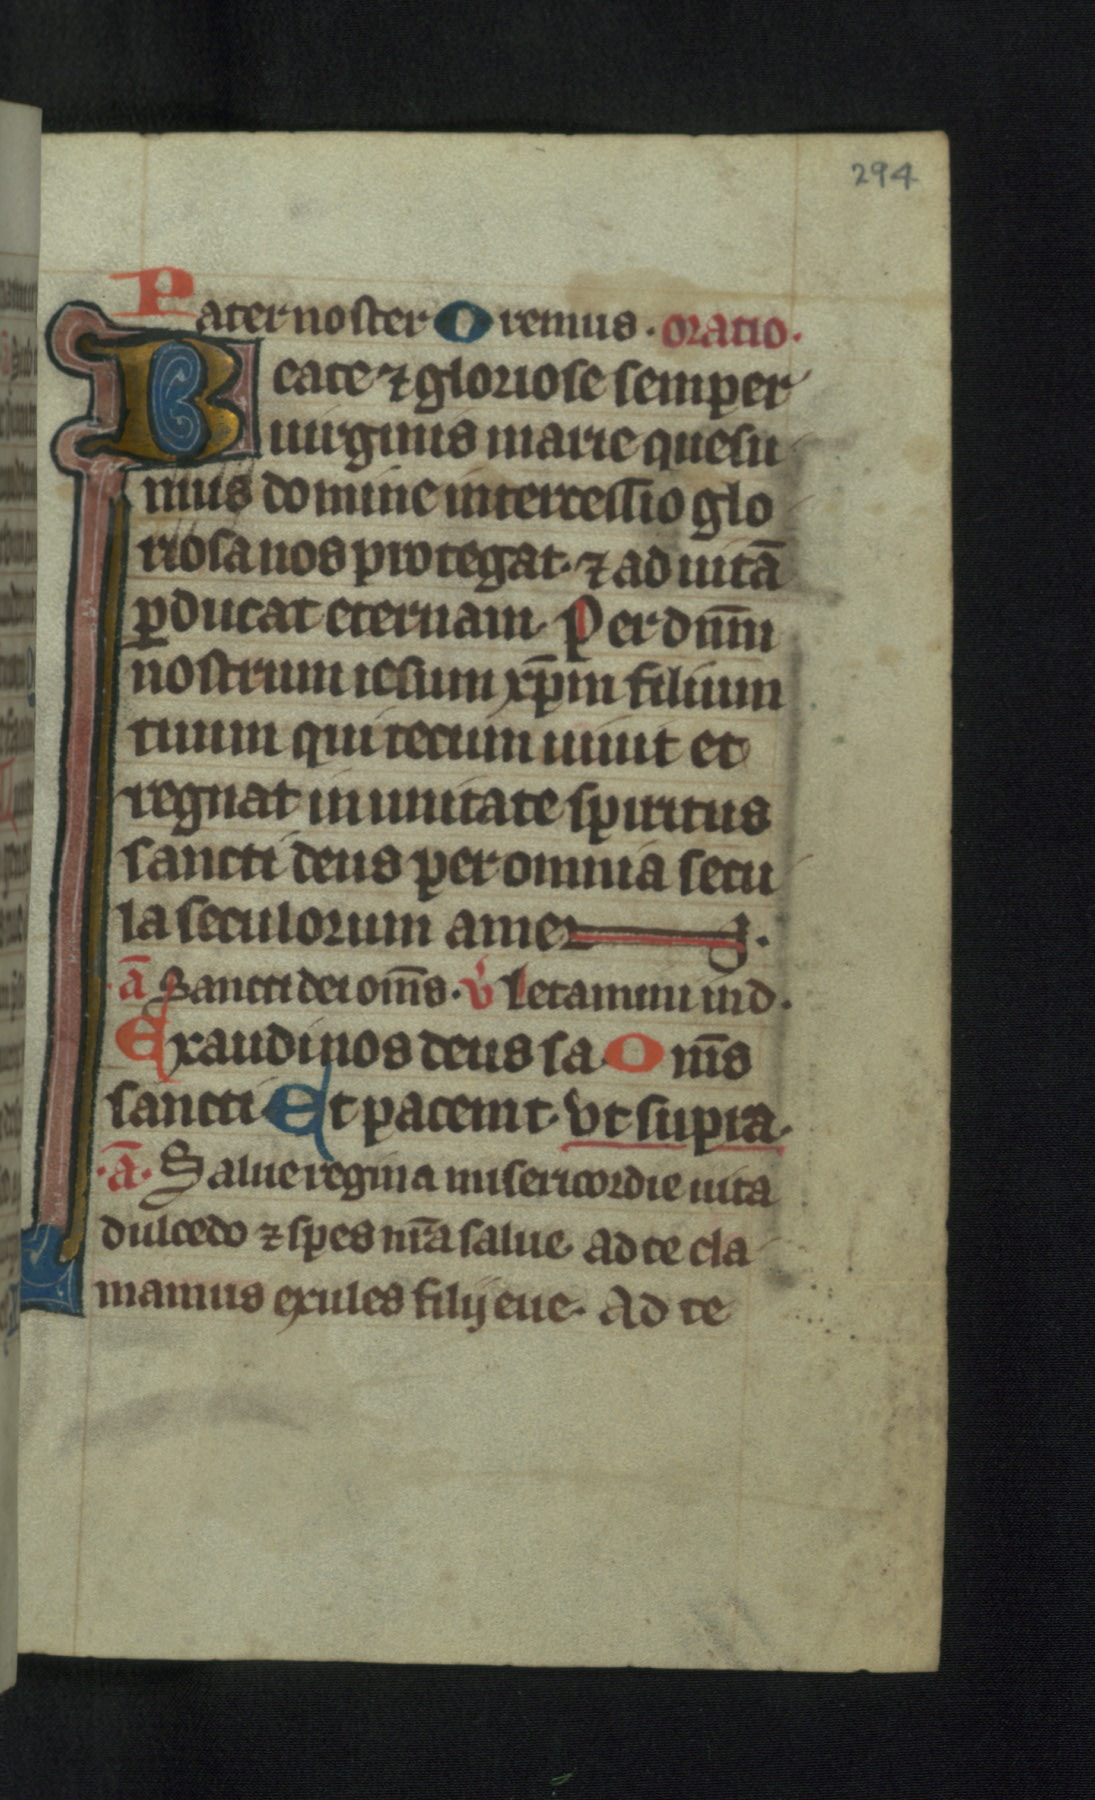 294
Pater noster Oremus . oratio .
Beate ⁊ gloriose semper
uirginis marie quesu
mus domine intercessio glo
riosa nos protegat . ⁊ ad uitā
ꝑducat eternam . Per dnm̄
nostrum iesum xp̄m filium
tuum qui tecum uiuit et
regnat in unitate spiritus
sancti deus per omnia secu
la seculorum amen .
. ā Sancti dei om̄s . v̓ letamini in d .
Exaudi nos deus sa . Om̄s
sancti . Et pacem t . vt supra .
. ā . Salue regina misericordie uita
dulcedo ⁊ spes nr̄a salue . ad te cla
mamus exules filij eue . Ad te